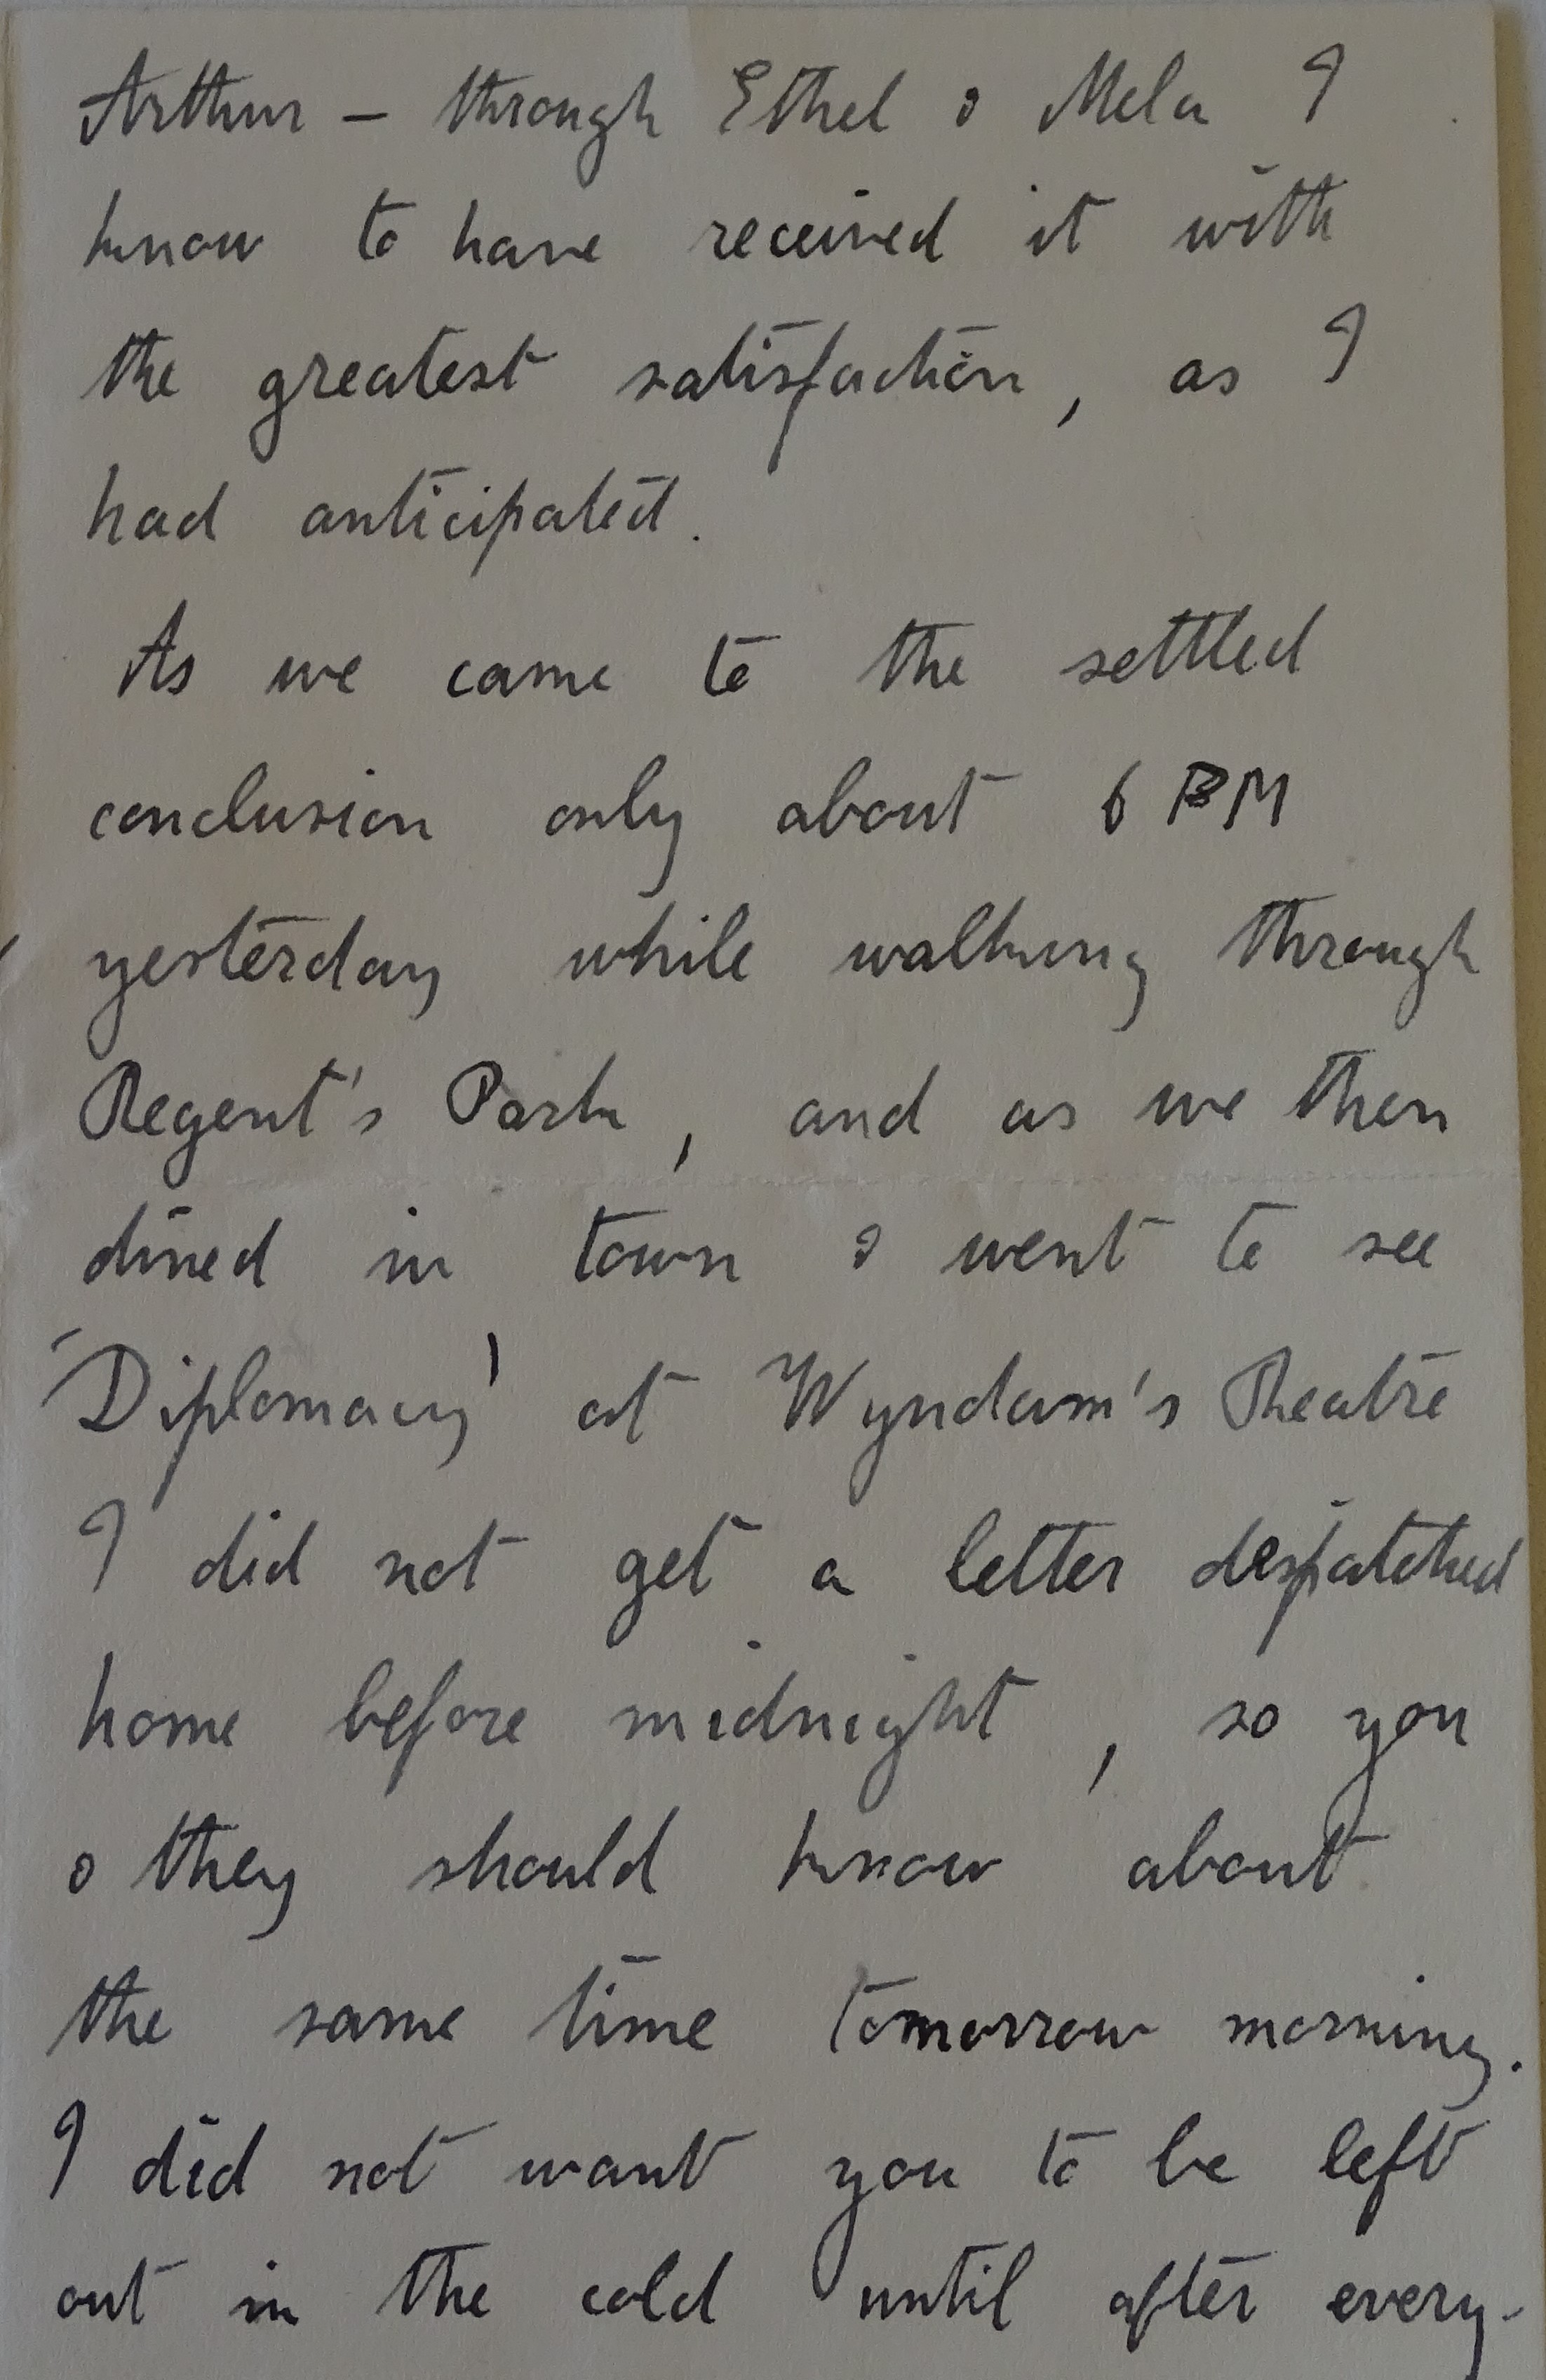 Arthur – through Ethel & Mela I
know to have received it with
the greatest satisfaction, as I
had anticipated.
As we came to the settled
conclusion only about 6 PM
yesterday while walking through
Regent's Park, and as we then
dined in town & went to see
'Diplomacy' at Wyndam's Theatre
I did not get a letter despatched
home before midnight, so you
& they should know about
the same time tomorrow morning.
I did not want you to be left
out in the cold until after every-